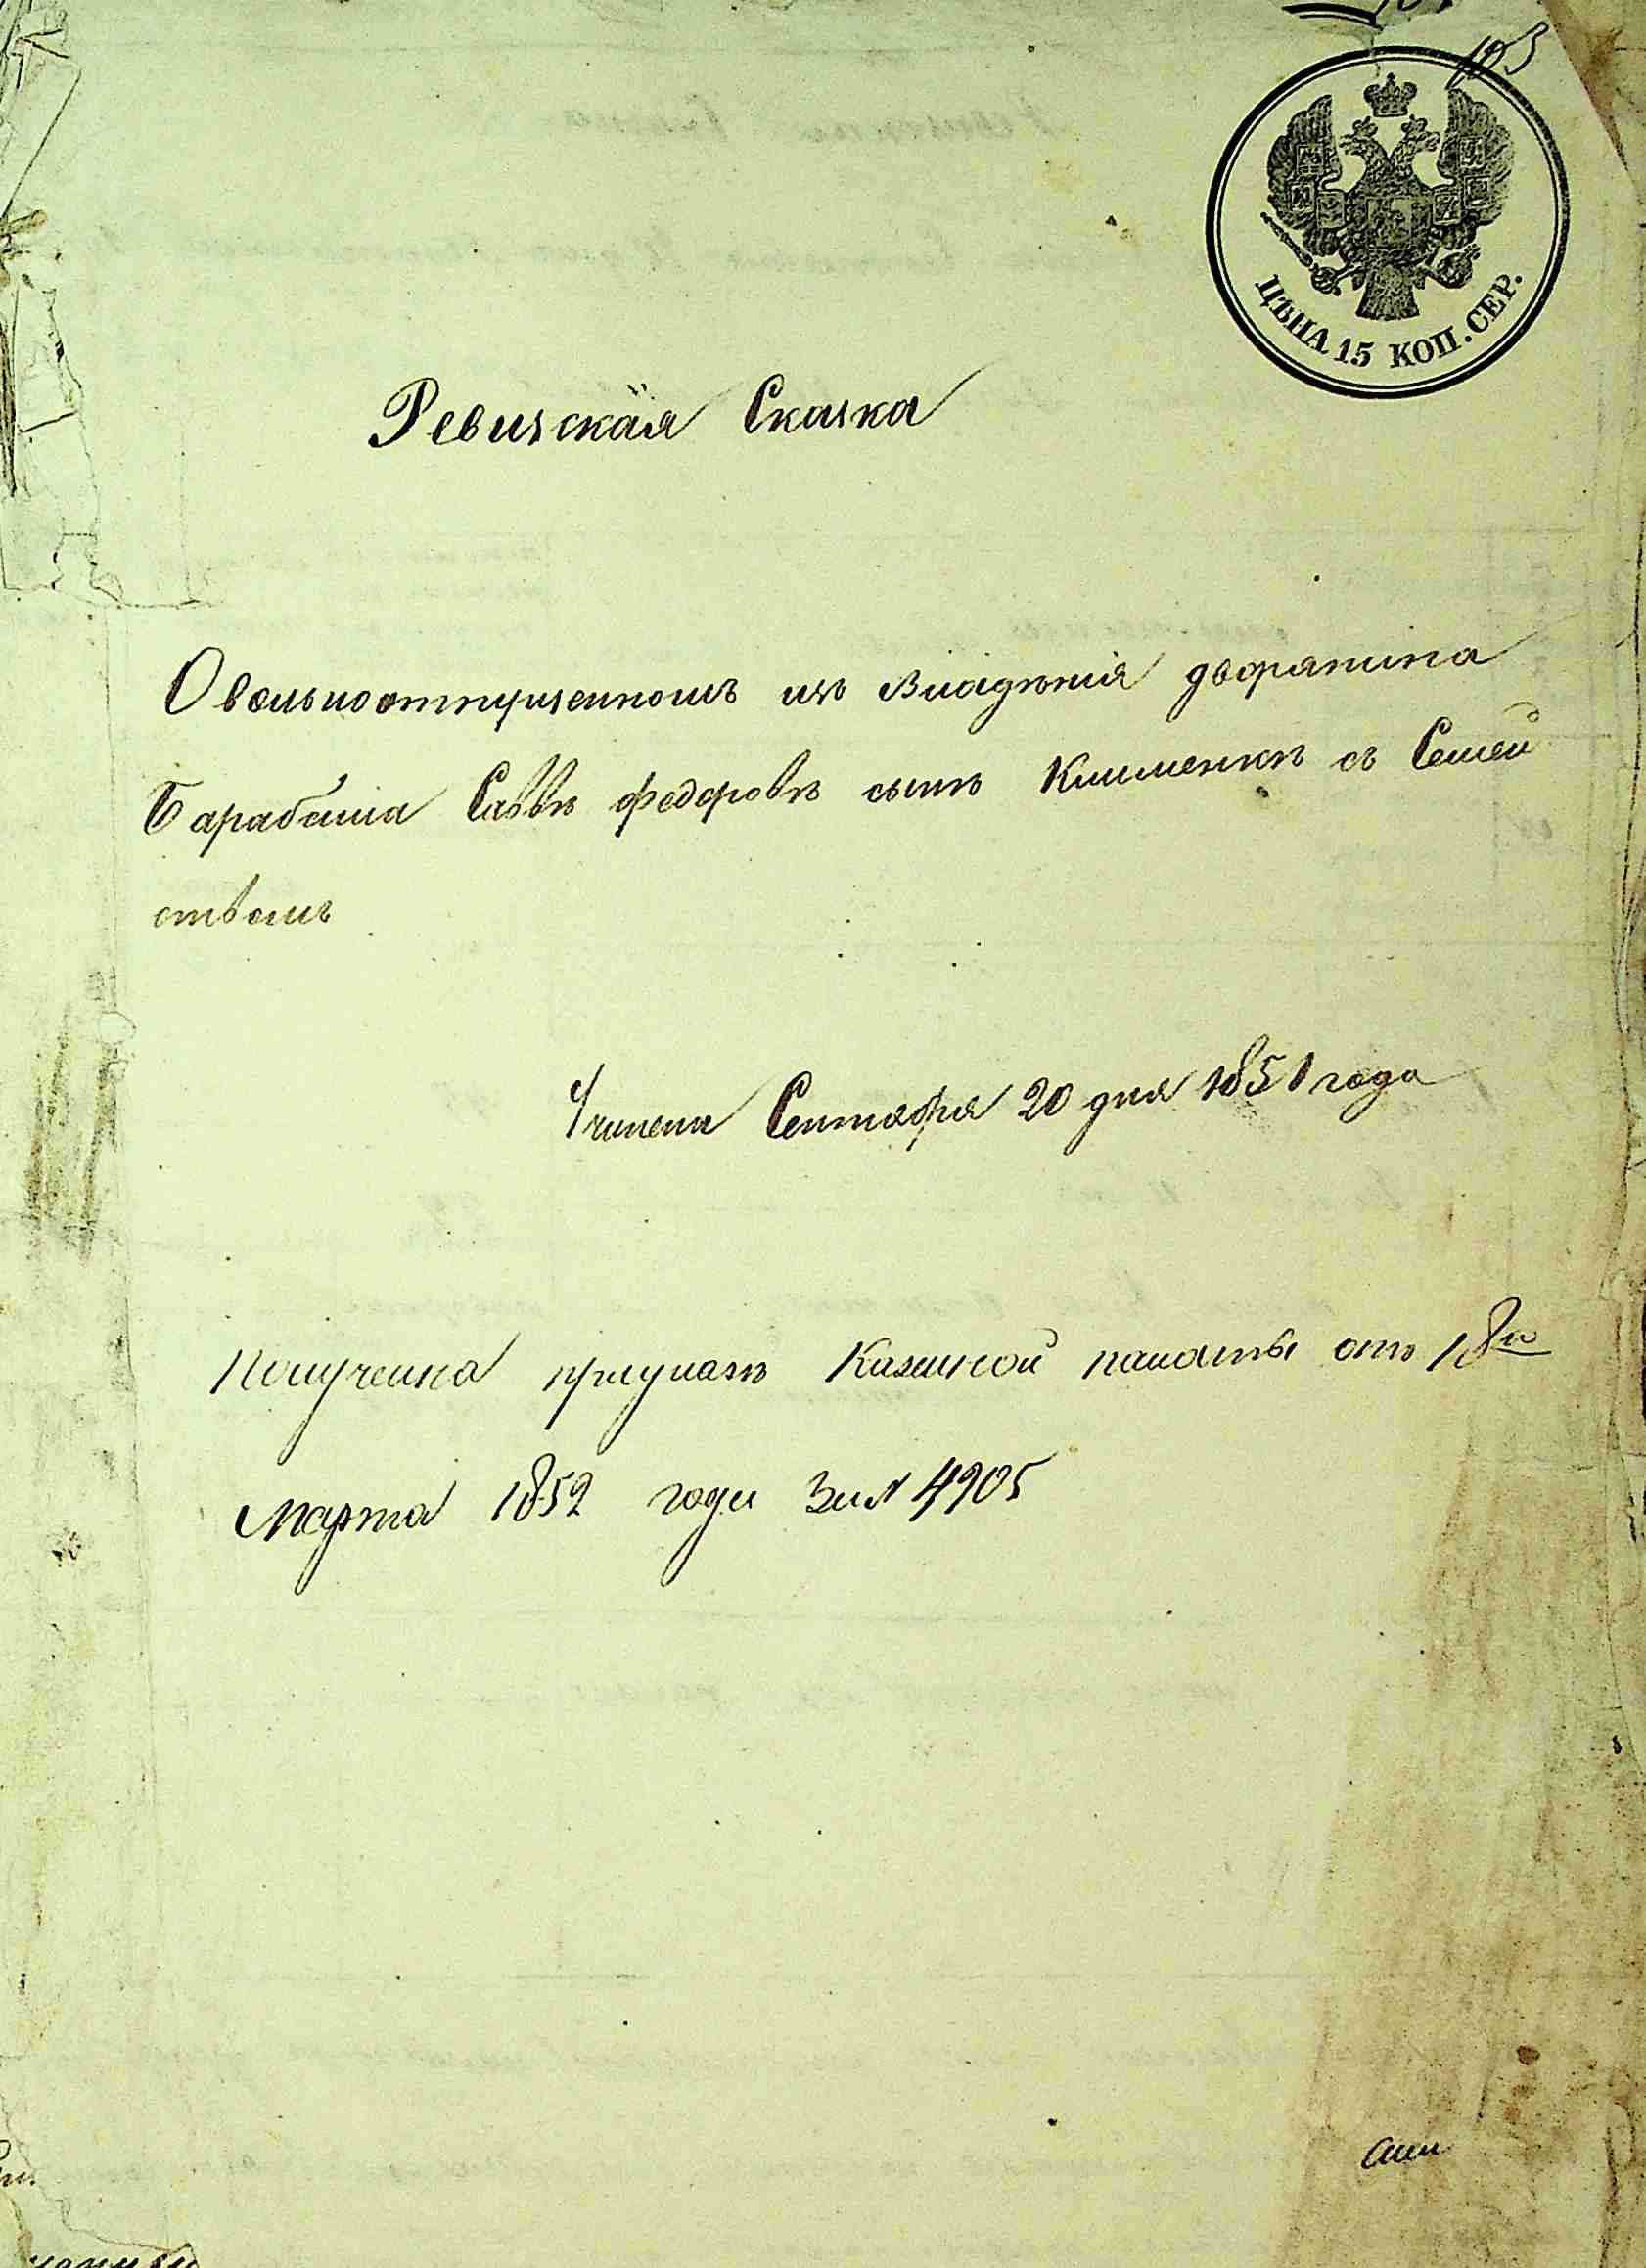 103
ЦѢНА 15 КОП. СЕР.
Ревизская Сказка
О вольноотпущенномъ изъ владѣнія дворянина
Барабаша Саввѣ Федоровѣ сынѣ Клименкѣ съ Семей
ствомъ
Учинена Сентября 20 дня 1851 года
Получена приуказѣ Казенной палаты отъ 18го
Марта 1852 года За № 4905